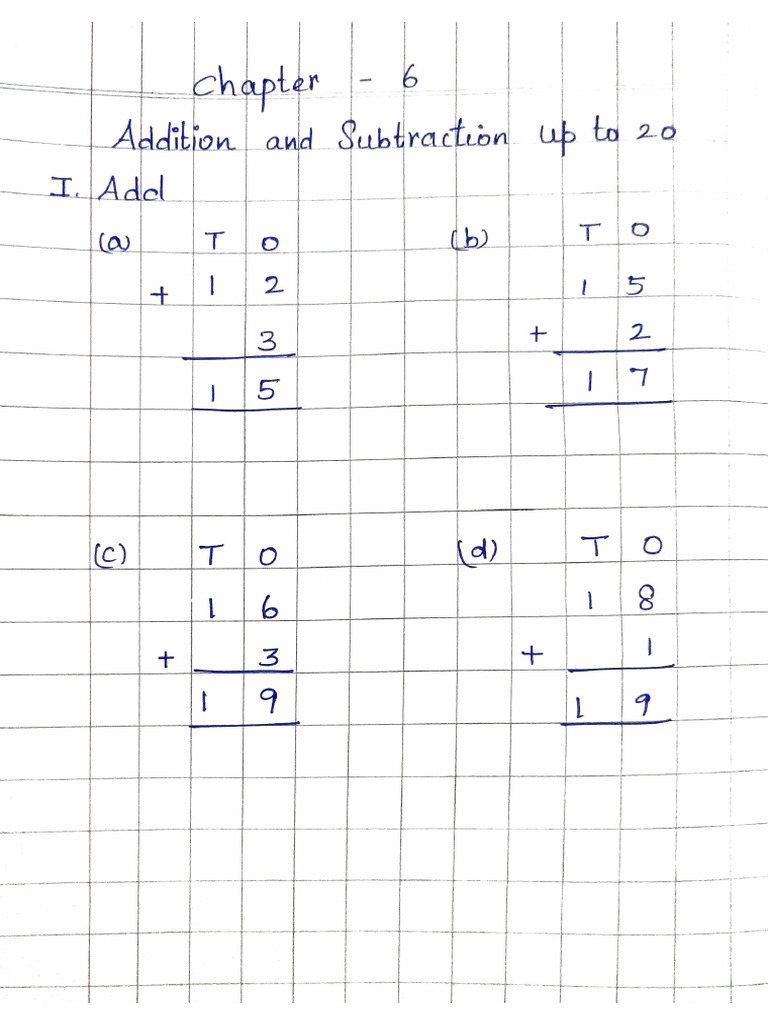 Chapter - 6
Addition and Subtraction up to 20
I. Add
(a) T O (b) T O
+ 1 2 1 5
3 + 2
1 5 1 7
(c) T O (d) T O
1 6 1 8
+ 3 + 1
1 9 1 9